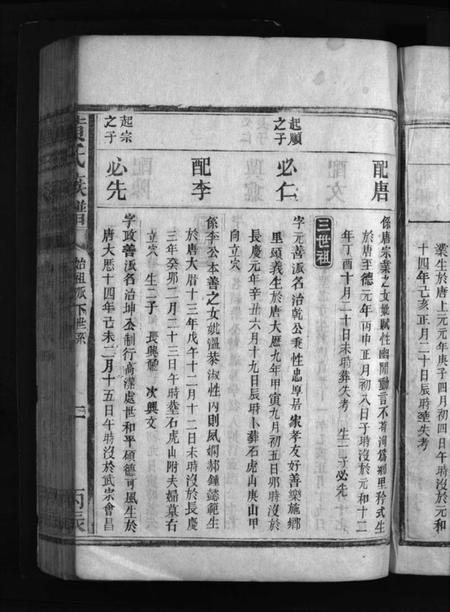 業生於唐上元元年庚子四月初四日午時沒於元和
十四年己亥正月二十日辰時塟失考
配唐
係唐宗業之女稟賦性幽閒動言不苟鄉里矜式生
於唐至德元年丙申正月初八日子時沒於元和十二
年丁酉十月二十日未時葬失考 生二子必先
三世祖
起順
之子
必仁
字元善派名治乾公秉性忠厚居家孝友好善樂施鄉
里頌義生於唐大曆九年甲寅九月初五日卯時沒於
長慶元年辛丑六月十九日辰時卜葬石虎山庚山甲
向立穴
配李
係李公本善之女就溫恭淑性內則夙嫻郝鍾懿範生
於唐大曆十三年戊午十二月十二日未時沒於長慶
三年癸卯二月二十三日午時塟石虎山附夫墓右
立穴 生二子 長興 次興文
起宗
之子
必先
字政善派名治坤公制行高潔處世和平碩德可風生於
唐大曆十四年己未二月十五日午時沒於武宗會昌
黃氏族譜
始祖派下世系
三
丙辰